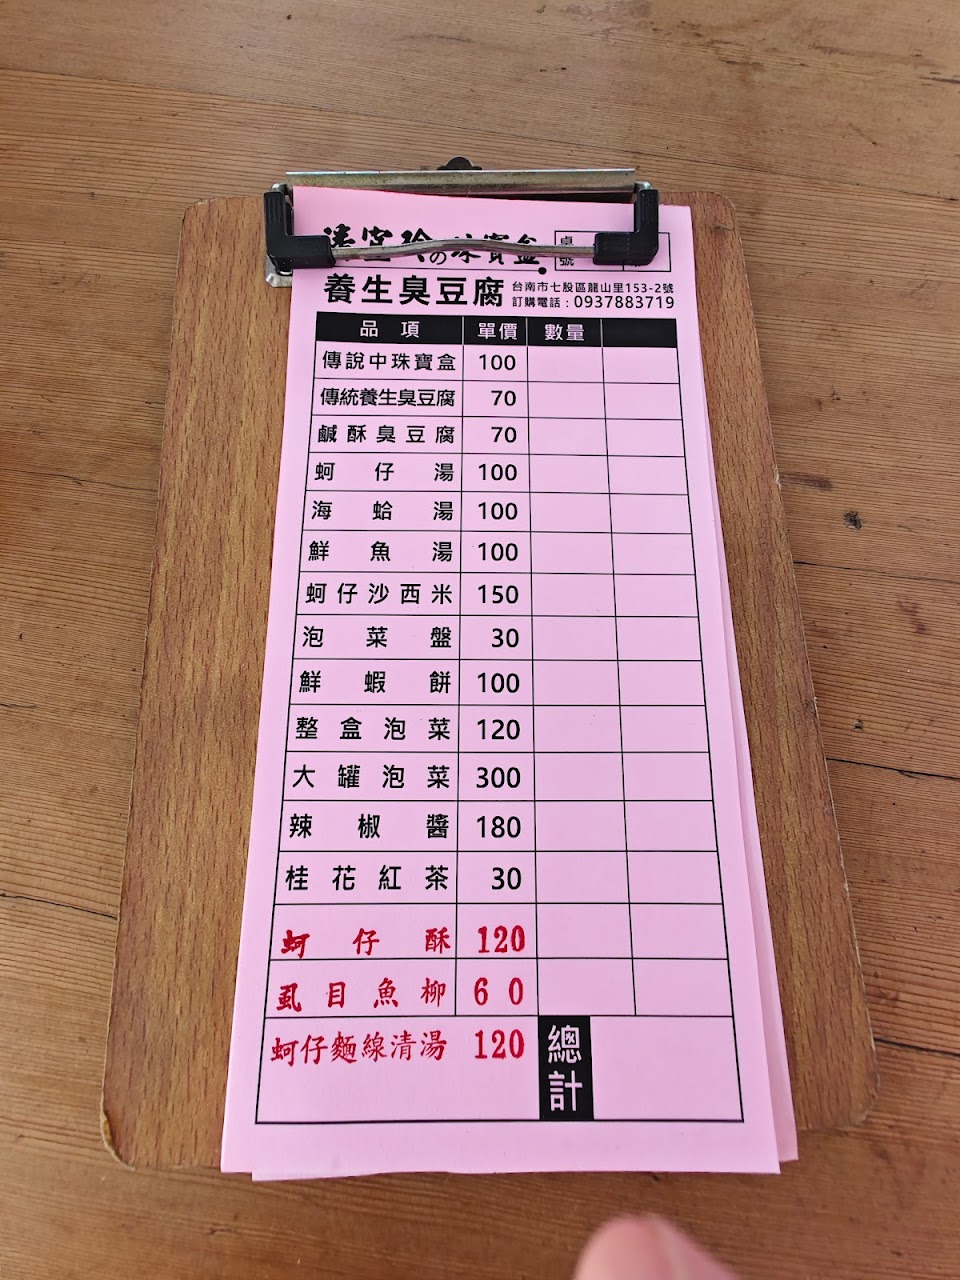 の珠寶盒
桌號
養生臭豆腐
台南市七股區龍山里153-2號
訂購電話：0937883719
品項 單價 數量
傳說中珠寶盒 100
傳統養生臭豆腐 70
鹹酥臭豆腐 70
蚵仔湯 100
海蛤湯 100
鮮魚湯 100
蚵仔沙西米 150
泡菜盤 30
鮮蝦餅 100
整盒泡菜 120
大罐泡菜 300
辣椒醬 180
桂花紅茶 30
蚵仔酥 120
虱目魚柳 60
蚵仔麵線清湯 120
總計